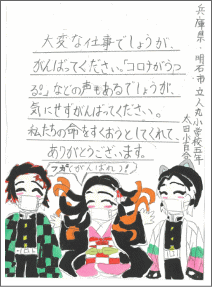 兵庫県・明石市立人丸小学校五年
太田小百合
大変な仕事でしょうが、
がんばってください。「コロナがうつ
る。」などの声もあるでしょうが、
気にせずがんばってください。
私たちの命をすくおうとしてくれて、
ありがとうございます。
(がんばれっ!)